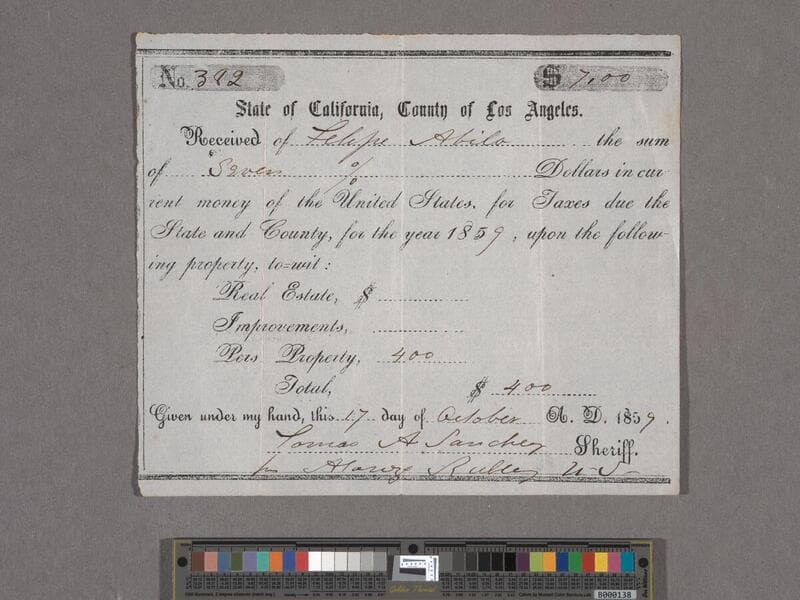 No. 392 $ 7,00
State of California, County of Los Angeles.
Received of Felipe Abila the sum
of Seven % Dollars in cur
rent money of the United States, for Taxes due the
State and County, for the year 1859, upon the follow-
ing property, to=wit:
Real Estate, $
Improvements,
Pers Property, 400
Total, $ 400
Given under my hand, this 17 day of October A. D. 1859.
Tomas A Sanchez Sheriff.
Golden Thread
B000138